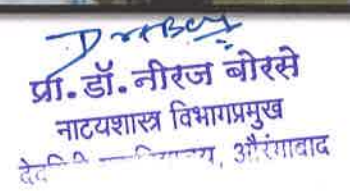 प्रा. डॉ. नीरज बोरसे
नाटयशास्त्र विभागप्रमुख
औरंगाबाद